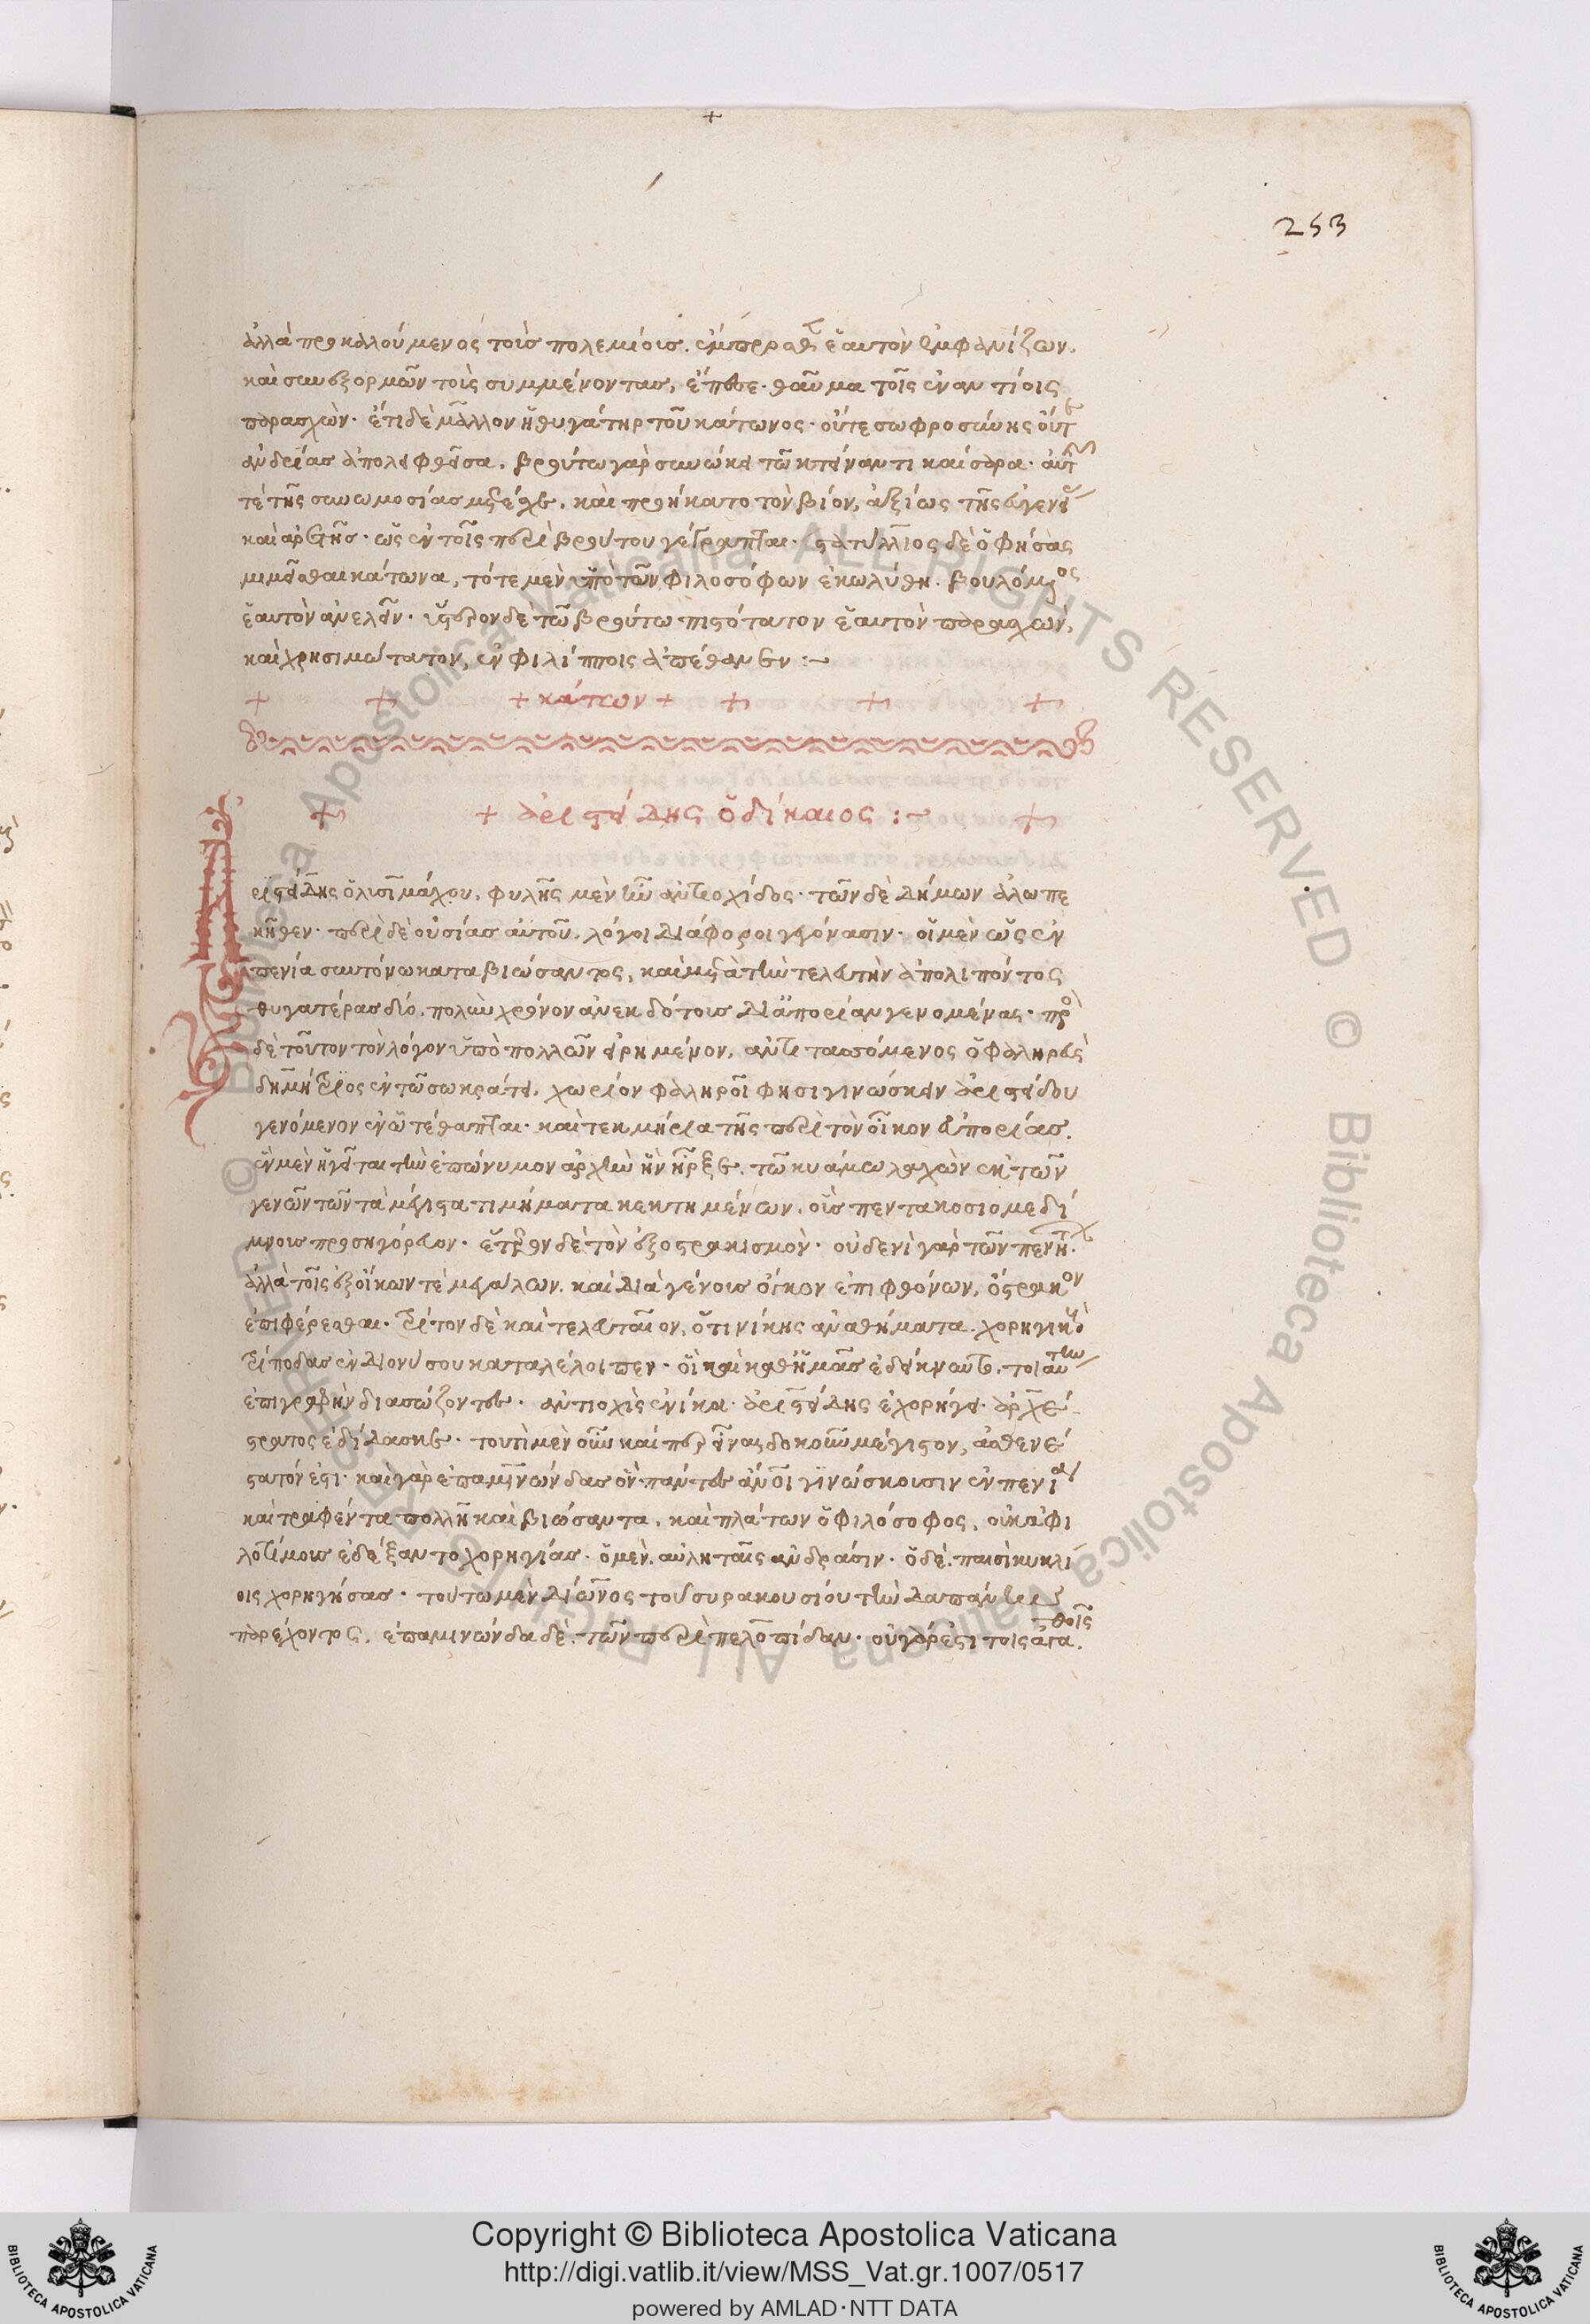 253
ἀλλὰ προκαλούμενος τοὺς πολεμίους. ἔμπροσθεν ἑαυτὸν ἐμφανίζων.
καὶ συνεξορμῶν τοὺς συμμένοντας, ἔπεσε. θαῦμα τοῖς ἐναντίοις
παρασχὼν. ἔτι δὲ μᾶλλον ἡ θυγάτηρ τοῦ κάτωνος. οὔτε σωφροσύνης οὔτε
ἀνδρείας ἀπολειφθεῖσα. βρούτω γὰρ συνώκει τῶ κτείναντι καίσαρα. αὐτῆς
τὲ τῆς συνωμοσίας μετέσχε. καὶ προήκατο τὸν βίον, ἀξίως τῆς εὐγενείας
καὶ ἀρετῆς. ὡς ἐν τοῖς περὶ βρούτου γέγραπται. στατύλλιος δὲ ὁ φήσας
μιμεῖσθαι κάτωνα, τότε μὲν ὑπὸ τῶν φιλοσόφων ἐκωλύθη. βουλόμενος
ἑαυτὸν ἀνελεῖν. ὕστερον δὲ τῶ βρούτω πιστότατον ἑαυτὸν παρασχὼν,
καὶ χρησιμώτατον, ἐν φιλίπποις ἀπέθανεν :~
+ + + κάτων + + + +
+ + ἀριστείδης ὁ δίκαιος :~ +
Ἀριστείδης ὁ λυσιμάχου, φυλῆς μὲν ἦν ἀντιοχίδος. τῶν δὲ δήμων ἀλωπε
κῆθεν. περὶ δὲ οὐσίας αὐτοῦ, λόγοι διάφοροι γεγόνασιν. οἱ μὲν ὡς ἐν
πενία συντόνω καταβιώσαντος, καὶ μετὰ τὴν τελευτὴν ἀπολιπόντος
θυγατέρας δύο. πολὺν χρόνον ἀνεκδότους δι' ἀπορίαν γενομένας. πρὸς
δὲ τοῦτον τὸν λόγον ὑπὸ πολλῶν εἰρημένον, ἀντιτασσόμενος ὁ φαληρεὺς
δημήτριος ἐν τῶ σωκράτει. χωρίον φαληροῖ φησι γινώσκειν ἀριστείδου
γενόμενον ἐν ὧ τέθαπται. καὶ τεκμήρια τῆς περὶ τὸν οἶκον εὐπορίας.
ἓν μὲν ἡγεῖται τὴν ἐπώνυμον ἀρχὴν ἣν ἦρξε. τῶ κυάμω λαχὼν ἐκ τῶν
γενῶν τῶν τὰ μέγιστα τιμήματα κεκτημένων. οὓς πεντακοσιομεδί
μνους προσηγόρευον. ἕτερον δὲ τὸν ἐξοστρακισμὸν. οὐδενὶ γὰρ τῶν πενήτων.
ἀλλὰ τοῖς ἐξ οἴκων τὲ μεγάλων. καὶ διὰ γένους ὄγκον ἐπιφθόνων, ὄστρακον
ἐπιφέρεσθαι. τρίτον δὲ καὶ τελευταῖον, ὅτι νίκης ἀναθήματα. χορηγικοὺς
τρίποδας ἐν διονύσου καταλέλοιπεν. οἳ καὶ καθ' ἡμᾶς ἐδείκνυντο. τοιαύτην
ἐπιγραφὴν διασώζοντες. ἀντιοχὶς ἐνίκα. ἀριστείδης ἐχορήγει. ἀρχέ
στρατος ἐδίδασκε. τουτὶ μὲν οὖν καίπερ εἶναι δοκοῦν μέγιστον, ἀσθενέ
στατόν ἐστι. καὶ γὰρ ἐπαμινώνδας ὃν πάντες ἄνθρωποι γινώσκουσιν ἐν πενία
καὶ τραφέντα πολλῆ καὶ βιώσαντα. καὶ πλάτων ὁ φιλόσοφος, οὐκ ἀφι
λοτίμους ἐδέξαντο χορηγίας. ὁ μὲν. αὐληταῖς ἀνδράσιν. ὁ δὲ. παισὶ κυκλί
οις χορηγήσας. τούτω μὲν δίωνος τοῦ συρακουσίου τὴν δαπάνην
παρέχοντος. ἐπαμινώνδα δὲ. τῶν περὶ πελοπίδαν. οὐ γάρ ἐστι τοῖς ἀγαθοῖς
© Biblioteca Apostolica Vaticana ALL RIGHTS RESERVED © Biblioteca Apostolica Vaticana ALL RIGHTS RESERVED
Copyright © Biblioteca Apostolica Vaticana
http://digi.vatlib.it/view/MSS_Vat.gr.1007/0517
powered by AMLAD·NTT DATA
BIBLIOTECA APOSTOLICA VATICANA
BIBLIOTECA APOSTOLICA VATICANA